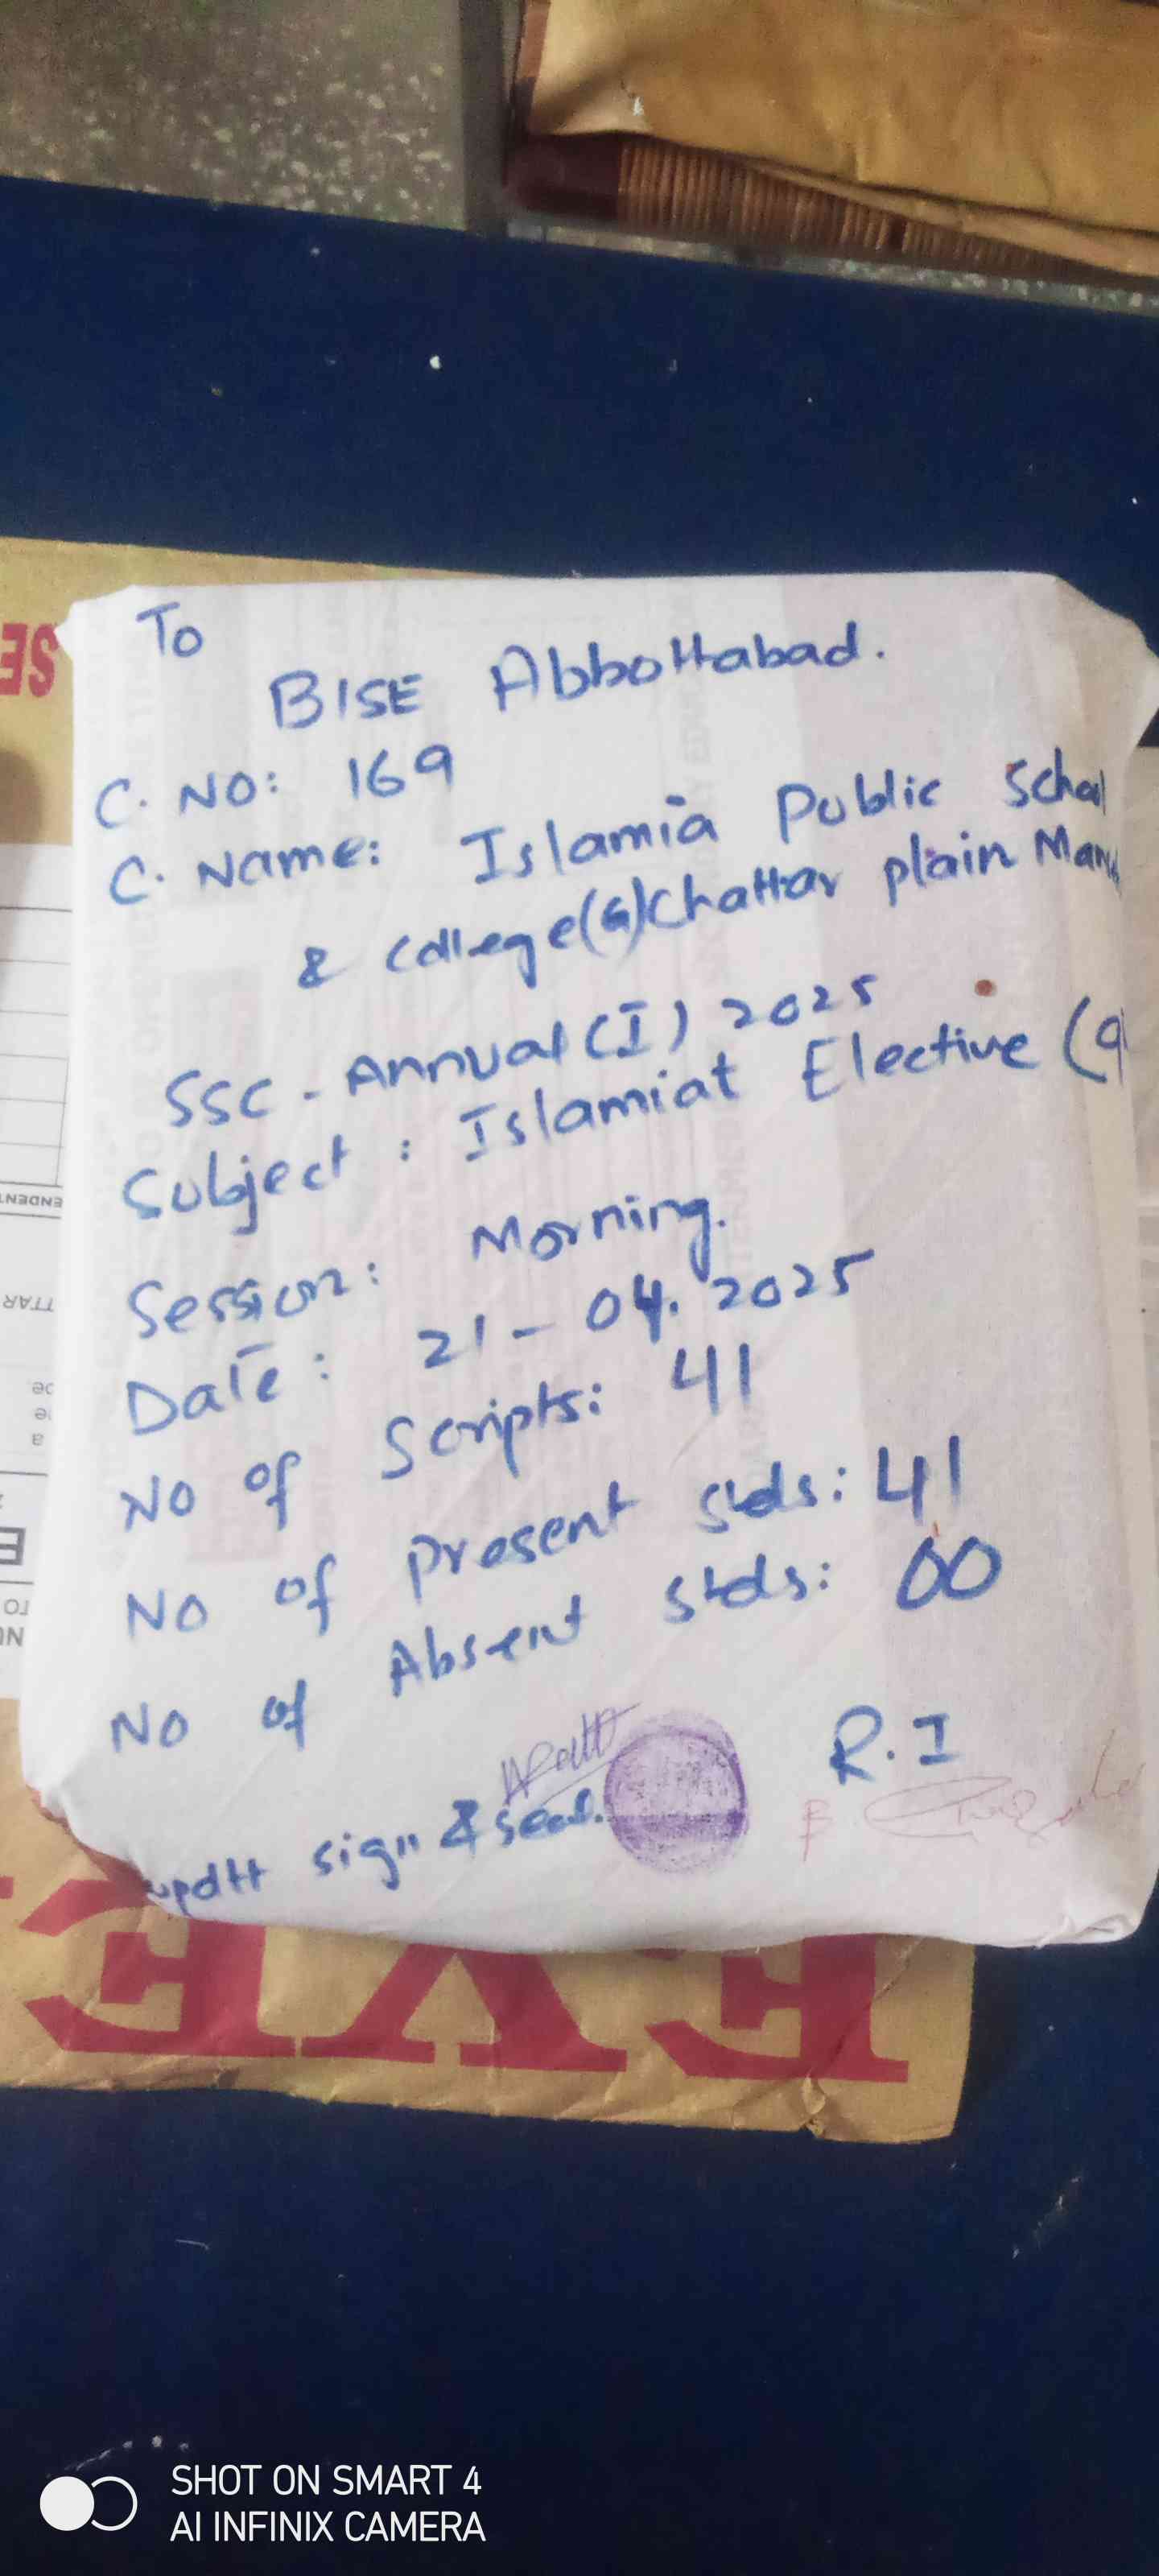 To
BISE Abbottabad.
C. NO: 169
C. Name: Islamia Public School
& College(G)Chattar plain Man
SSC - Annual (I) 2025
Subject : Islamiat Elective (9
Session: Morning.
Date : 21 - 04. 2025
No of Scripts: 41
No of present stds: 41
No of Absent stds: 00
R.I
updtt sign & seal.
SE
ENDENT
TTAR
EVE
SHOT ON SMART 4
AI INFINIX CAMERA